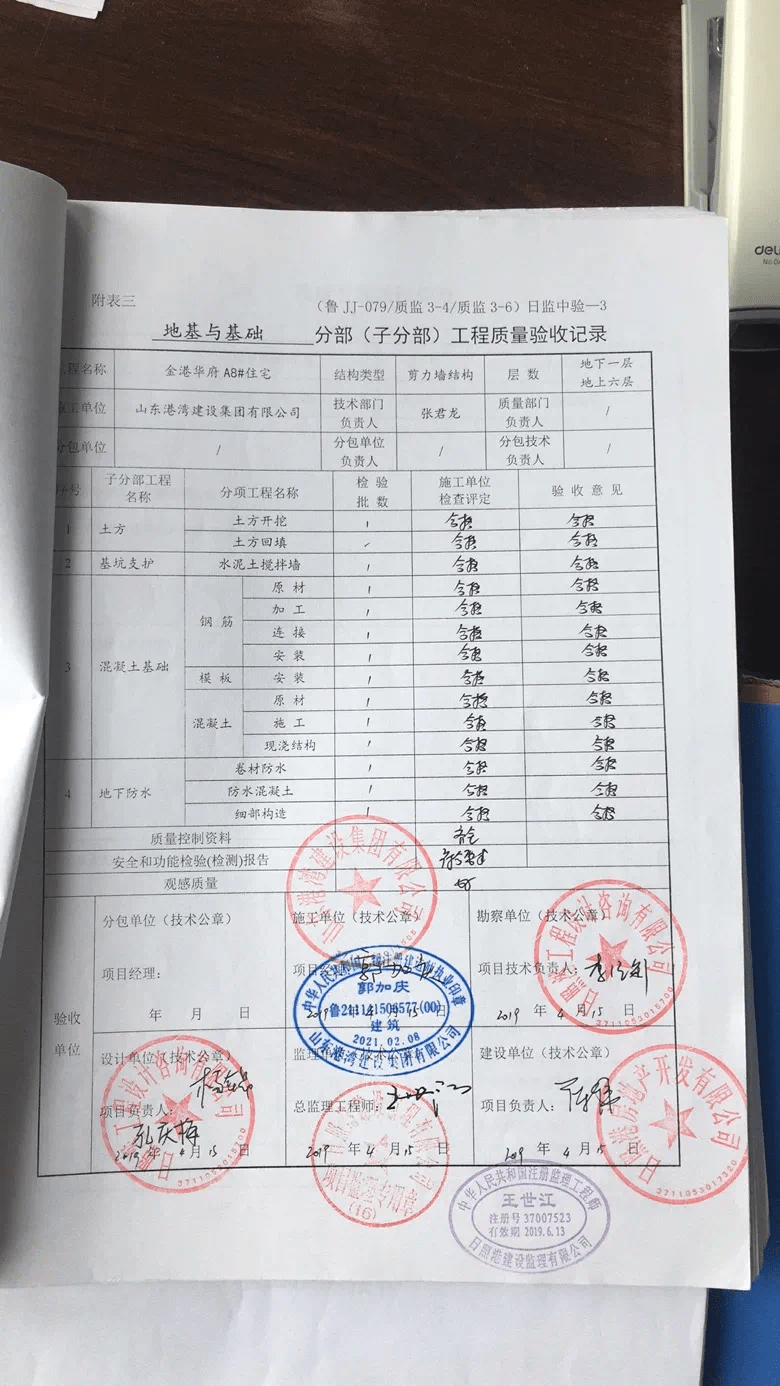 附表三
（鲁 JJ-079/质监 3-4/质监 3-6）日监中验—3
地基与基础 分部（子分部）工程质量验收记录
工程名称 金港华府 A8#住宅 结构类型 剪力墙结构 层 数 地下一层 地上六层
施工单位 山东港湾建设集团有限公司 技术部门负责人 张君龙 质量部门负责人 /
分包单位 / 分包单位负责人 / 分包技术负责人 /
序号 子分部工程名称 分项工程名称 检 验 批 数 施工单位检查评定 验 收 意 见
1 土方 土方开挖 1 合格 合格
土方回填 合格 合格
2 基坑支护 水泥土搅拌墙 1 合格 合格
3 混凝土基础 钢 筋 原 材 1 合格 合格
加 工 1 合格 合格
连 接 1 合格 合格
安 装 1 合格 合格
模 板 安 装 1 合格 合格
混凝土 原 材 1 合格 合格
施 工 1 合格 合格
现浇结构 1 合格 合格
4 地下防水 卷材防水 1 合格 合格
防水混凝土 1 合格 合格
细部构造 1 合格 合格
质量控制资料 齐全
安全和功能检验(检测)报告 符合要求
观感质量 好
验收单位
分包单位（技术公章） 施工单位（技术公章） 勘察单位（技术公章）
项目经理： 项目经理： 项目技术负责人：
年 月 日 2019 年 4 月 15 日 2019 年 4 月 15 日
设计单位（技术公章） 监理单位（技术公章） 建设单位（技术公章）
项目负责人： 总监理工程师： 项目负责人：
2019 年 4 月 15 日 2019 年 4 月 15 日 2019 年 4 月 15 日
港湾建设集团有限公司
中华人民共和国一级注册建造师执业印章
郭加庆
鲁211141506577(00)
建筑
2021.02.08
山东港湾建设集团有限公司
工程设计咨询有限公司
3711053015700
工程设计咨询有限公司
3711053015700
项目监理专用章
(16)
日照港房地产开发有限公司
3711053017320
中华人民共和国注册监理工程师
王世江
注册号 37007523
有效期 2019.6.13
日照港建设监理有限公司
deli